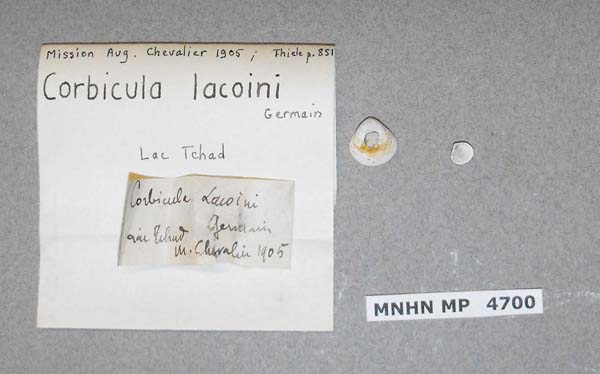 Mission Aug. Chevalier 1905 ; Thiele p. 851
Corbicula lacoini
Germain
Lac Tchad
Corbicula Lacoini
Germain
Tchad
M. Chevalier 1905
MNHN MP 4700